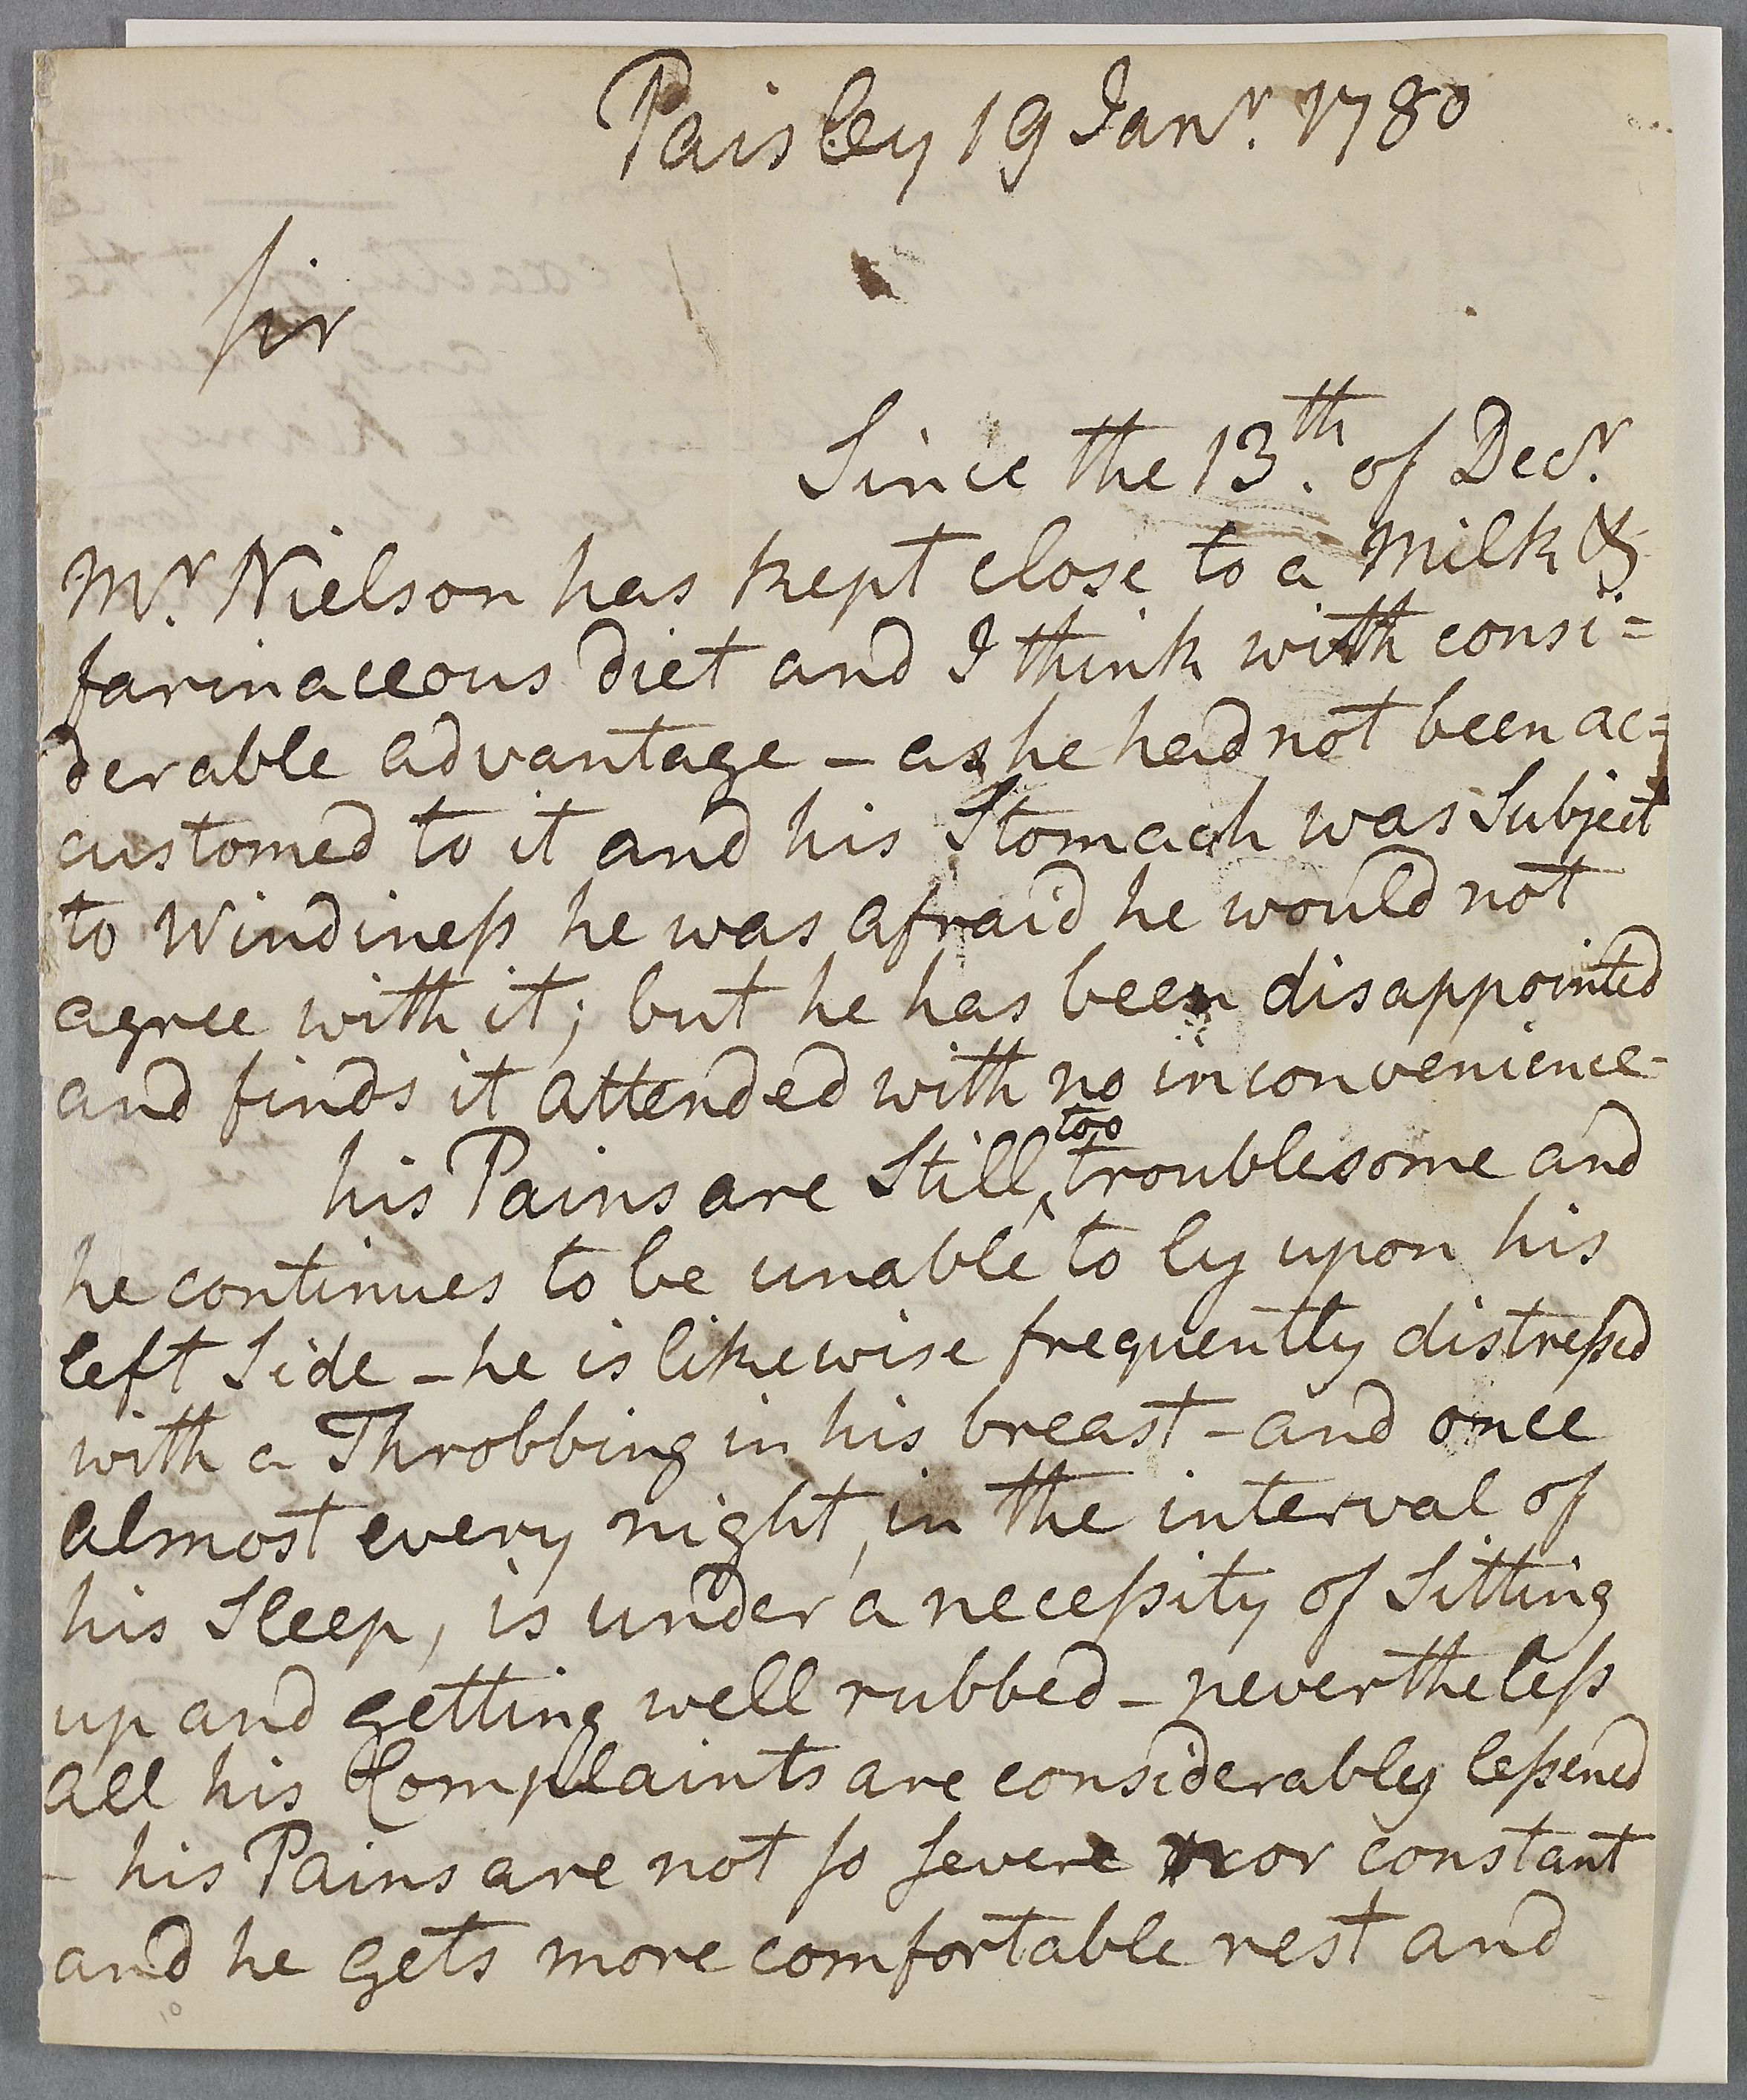 Paisley 19 Janr. 1780
Sir
Since the 13th. of Decr.
Mr. Nielson has kept close to a Milk &
farinaceous diet and I think with consi=
derable advantage – as he had not been ac=
customed to it and his Stomach was Subject
to Windiness he was afraid he would not
agree with it; but he has been disappointed
and finds it attended with no inconvenience –
his Pains are Still ^too troublesome and
he continues to be unable to ly upon his
left Side – he is likewise frequently distressed
with a Throbbing in his breast – and once
almost every night, in the interval of
his Sleep, is under a necessity of Sitting
up and getting well rubbed – nevertheless
all his Complaints are considerably lessened
– his Pains are not so severe nor constant
and he gets more comfortable rest and